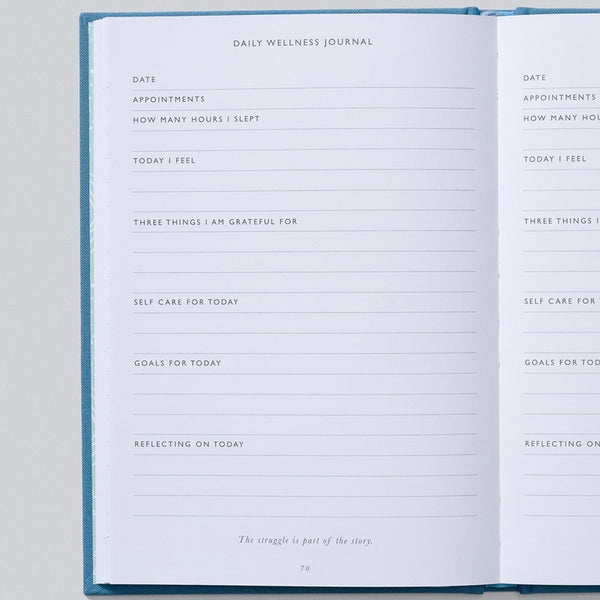 DAILY WELLNESS JOURNAL
DATE
APPOINTMENTS
HOW MANY HOURS I SLEPT
TODAY I FEEL
THREE THINGS I AM GRATEFUL FOR
SELF CARE FOR TODAY
GOALS FOR TODAY
REFLECTING ON TODAY
The struggle is part of the story.
70
DATE
APPOINTMENTS
HOW MANY HOU
TODAY I FEEL
THREE THINGS I
SELF CARE FOR
GOALS FOR TOD
REFLECTING ON